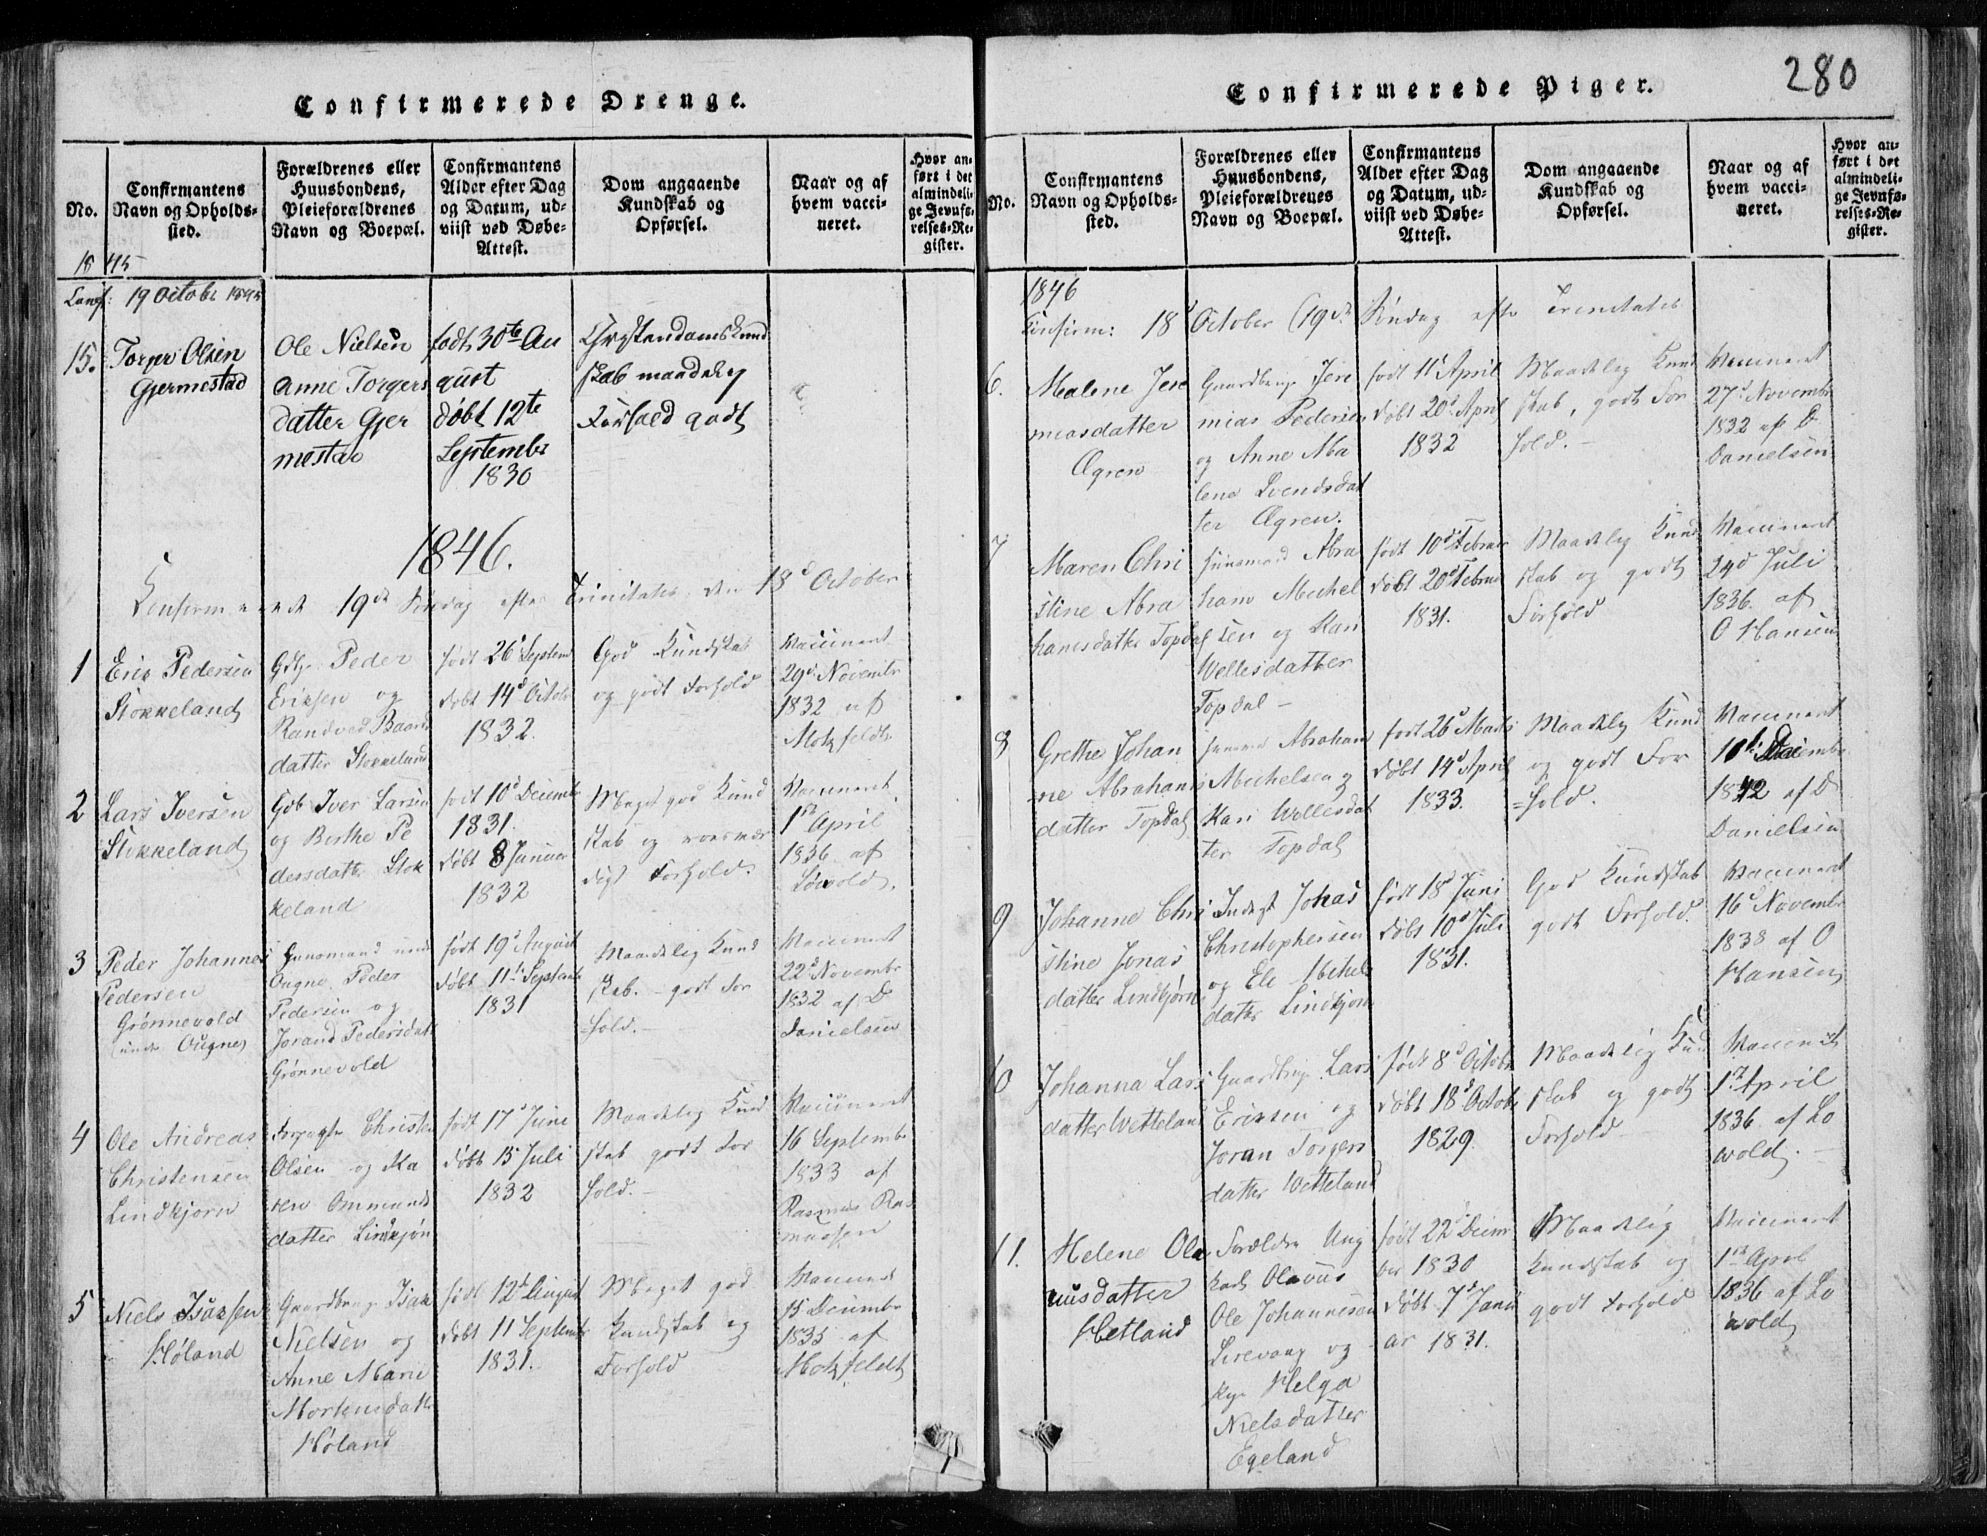 280
Confirmerede Drenge.
No.
Confirmantens
Navn og Opholds-
sted.
Forældrenes eller
Huusbondens,
Pleieforældrenes
Navn og Boepæl.
Confirmantens
Alder efter Dag
og Datum, ud-
viist ved Døbe-
Attest.
Dom angaaende
Kundskab og
Opførsel.
Naar og af
hvem vacci-
neret.
Hvor an-
ført i det
almindeli-
ge Jevnfø-
relses-Re-
gister.
1845
Conf: 19 Octobr 1845
15.
Torger Olsen
Gjermestad
Ole Nielsen
Anne Torgers
datter Gjer
mestad
født 30te Au
gust
døbt 12te
Septembr
1830
Chrstendomskund
skab maadelig
Forhold godt
1846.
Confirmerede 19de Søndag efter Trinitatis den 18d October
1
Eric Pedersen
Stokkeland
Peder
Eriksen og
Randved Baards
datter Stokkeland
født 26d Septem
døbt 14d Octob
1832.
God Kundskab
og godt Forhold
Vaccineret
29d Novembr
1832 af
Motzfeldt
2
Lars Iversen
Stokkeland
Gdb Iver Larsen
og Berthe Pe
dersdatter Stok
keland
født 10d Decembr
1831.
døbt 8 Januar
1832
Meget god Kund
skab og roesvær
digt Forhold.
Vaccineret
1ste April
1836 af
Løvold.
3
Peder Johannes
Pedersen
Grønnevold
under Ougne
Huusmand under
Ougne Peder
Pedersen og
Jorand Pedersdatt
Grønnevold
født 19d August
døbt 11te Septemb
1831
Maadelig Kund
skab. godt For
hold.
Vaccineret
22d Novembr
1832 af D
Danielsen
4
Ole Andreas
Christensen
Lindkjørn
Christen
Olsen og Ka
ren Ommunds
datter Lindkjørn
født 17d Juni
døbt 15 Juli
1832
Maadelig Kund
skab godt For
hold.
Vaccineret
16 Septembr
1833 af
Rasmus Ras
mussen
5
Niels Isaksen
Høland
Gaardbruger Isak
Nielsen og
Anne Marie
Mortensdatter
Høland
født 12d August
døbt 11 Septembr
1831.
Meget god
Kundskab og
Forhold
Vaccineret
15 Decembr
1835 af
Motzfeldt
Confirmerede Piger.
No.
Confirmantens
Navn og Opholds-
sted.
Forældrenes eller
Huusbondens,
Pleieforældrenes
Navn og Boepæl.
Confirmantens
Alder efter Dag
og Datum, ud-
viist ved Døbe-
Attest.
Dom angaaende
Kundskab og
Opførsel.
Naar og af
hvem vacci-
neret.
Hvor an-
ført i det
almindeli-
ge Jevnfø-
relses-Re-
gister.
1846
Confirm: 18 October (19de Søndag efter Trinitatis
6.
Malene Jere
miasdatter
Ægren
Gaardbruger Jere
mias Pedersen
og Anne Ma
lene Svendsdat
ter Ægren.
født 11 April
døbt 20d April
1832
Maadelig Kund
skab, godt For
hold.
Vaccineret
27d Novembr
1832 af D
Danielsen
7
Maren Chri
stine Abra
hamsdatter Topdal
Huusmand Abra
ham Michel
sen og Kari
Wellesdatter
Topdal
født 10d Februar
døbt 20d Februar
1831.
Maadelig Kund
skab og godt
Forhold
Vaccineret
24d Juli
1836. af
O Hansen
8
Grethe Johan
ne Abrahams
datter Topdal
Abraham
Michelsen og
Kari Wellesdat
ter Topdal
født 26d Marts
døbt 14d April
1833.
Maadelig Kund
og godt For
hold.
Vaccineret
Decembr
af D
Danielsen
9
Johanne Chri
stine Jonas
datter Lindkjørn
Inderst Jonas
Christophersen
og Ele Michels
datter Lindkjørn
født 18d Juni
døbt 10d Juli
1831.
God Kundskab
godt Forhold.
Vaccineret
16d Novembr
1838 af O
Hansen
10
Johanna Lars
datter Wetteland
Gaardbruger Lars
Ericsen og
Joran Torgers
datter Wetteland
født 8d Octobr
døbt 18d Octobr
1829.
Maadelig Kund
skab og godt
Forhold
Vaccineret
1ste April
1836 af Lø
wold.
11.
Helene Ola
vusdatter
Hetland
Forældre Ung
karl Olavus
Ole Johannesen
Lirevaag og
Pige Helga
Nielsdatter
Egeland
født 22d Decem
ber 1830
døbt 7d Janu
ar 1831.
Maadelig
Kundskab og
godt Forhold
Vaccineret
1ste April
1836 af Lø
wold